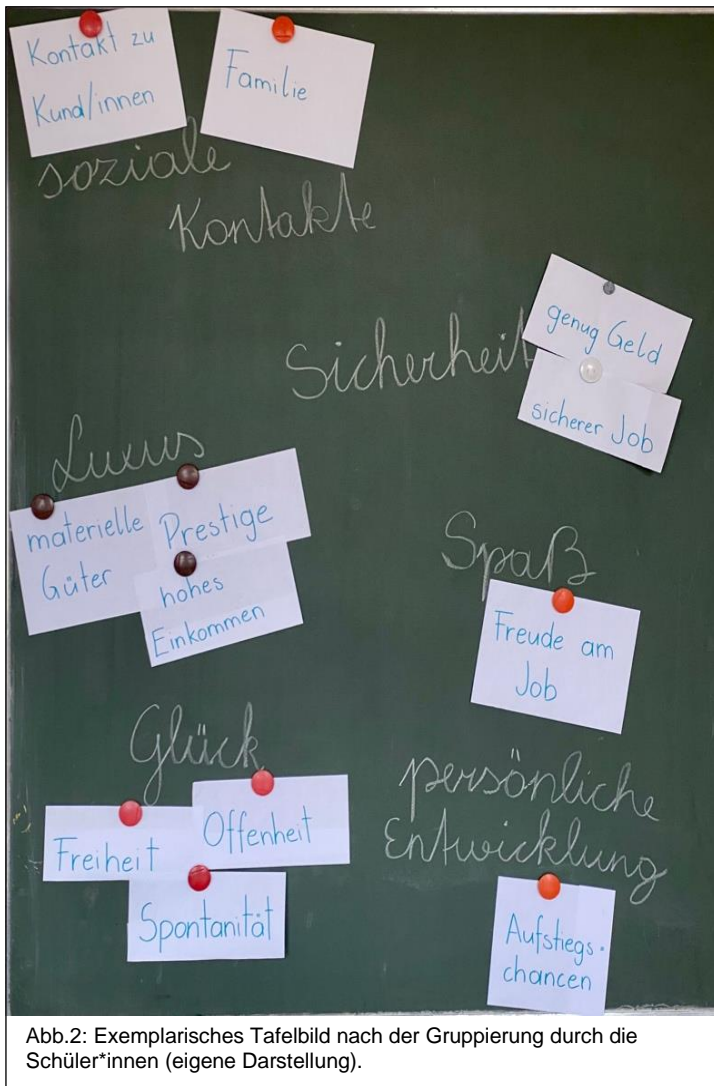 Kontakt zu
Kund/innen
Familie
soziale
Kontakte
Sicherheit
genug Geld
sicherer Job
Luxus
materielle
Güter
Prestige
hohes
Einkommen
Spaß
Freude am
Job
Glück
Freiheit
Offenheit
Spontanität
persönliche
Entwicklung
Aufstiegs-
chancen
Abb.2: Exemplarisches Tafelbild nach der Gruppierung durch die
Schüler*innen (eigene Darstellung).